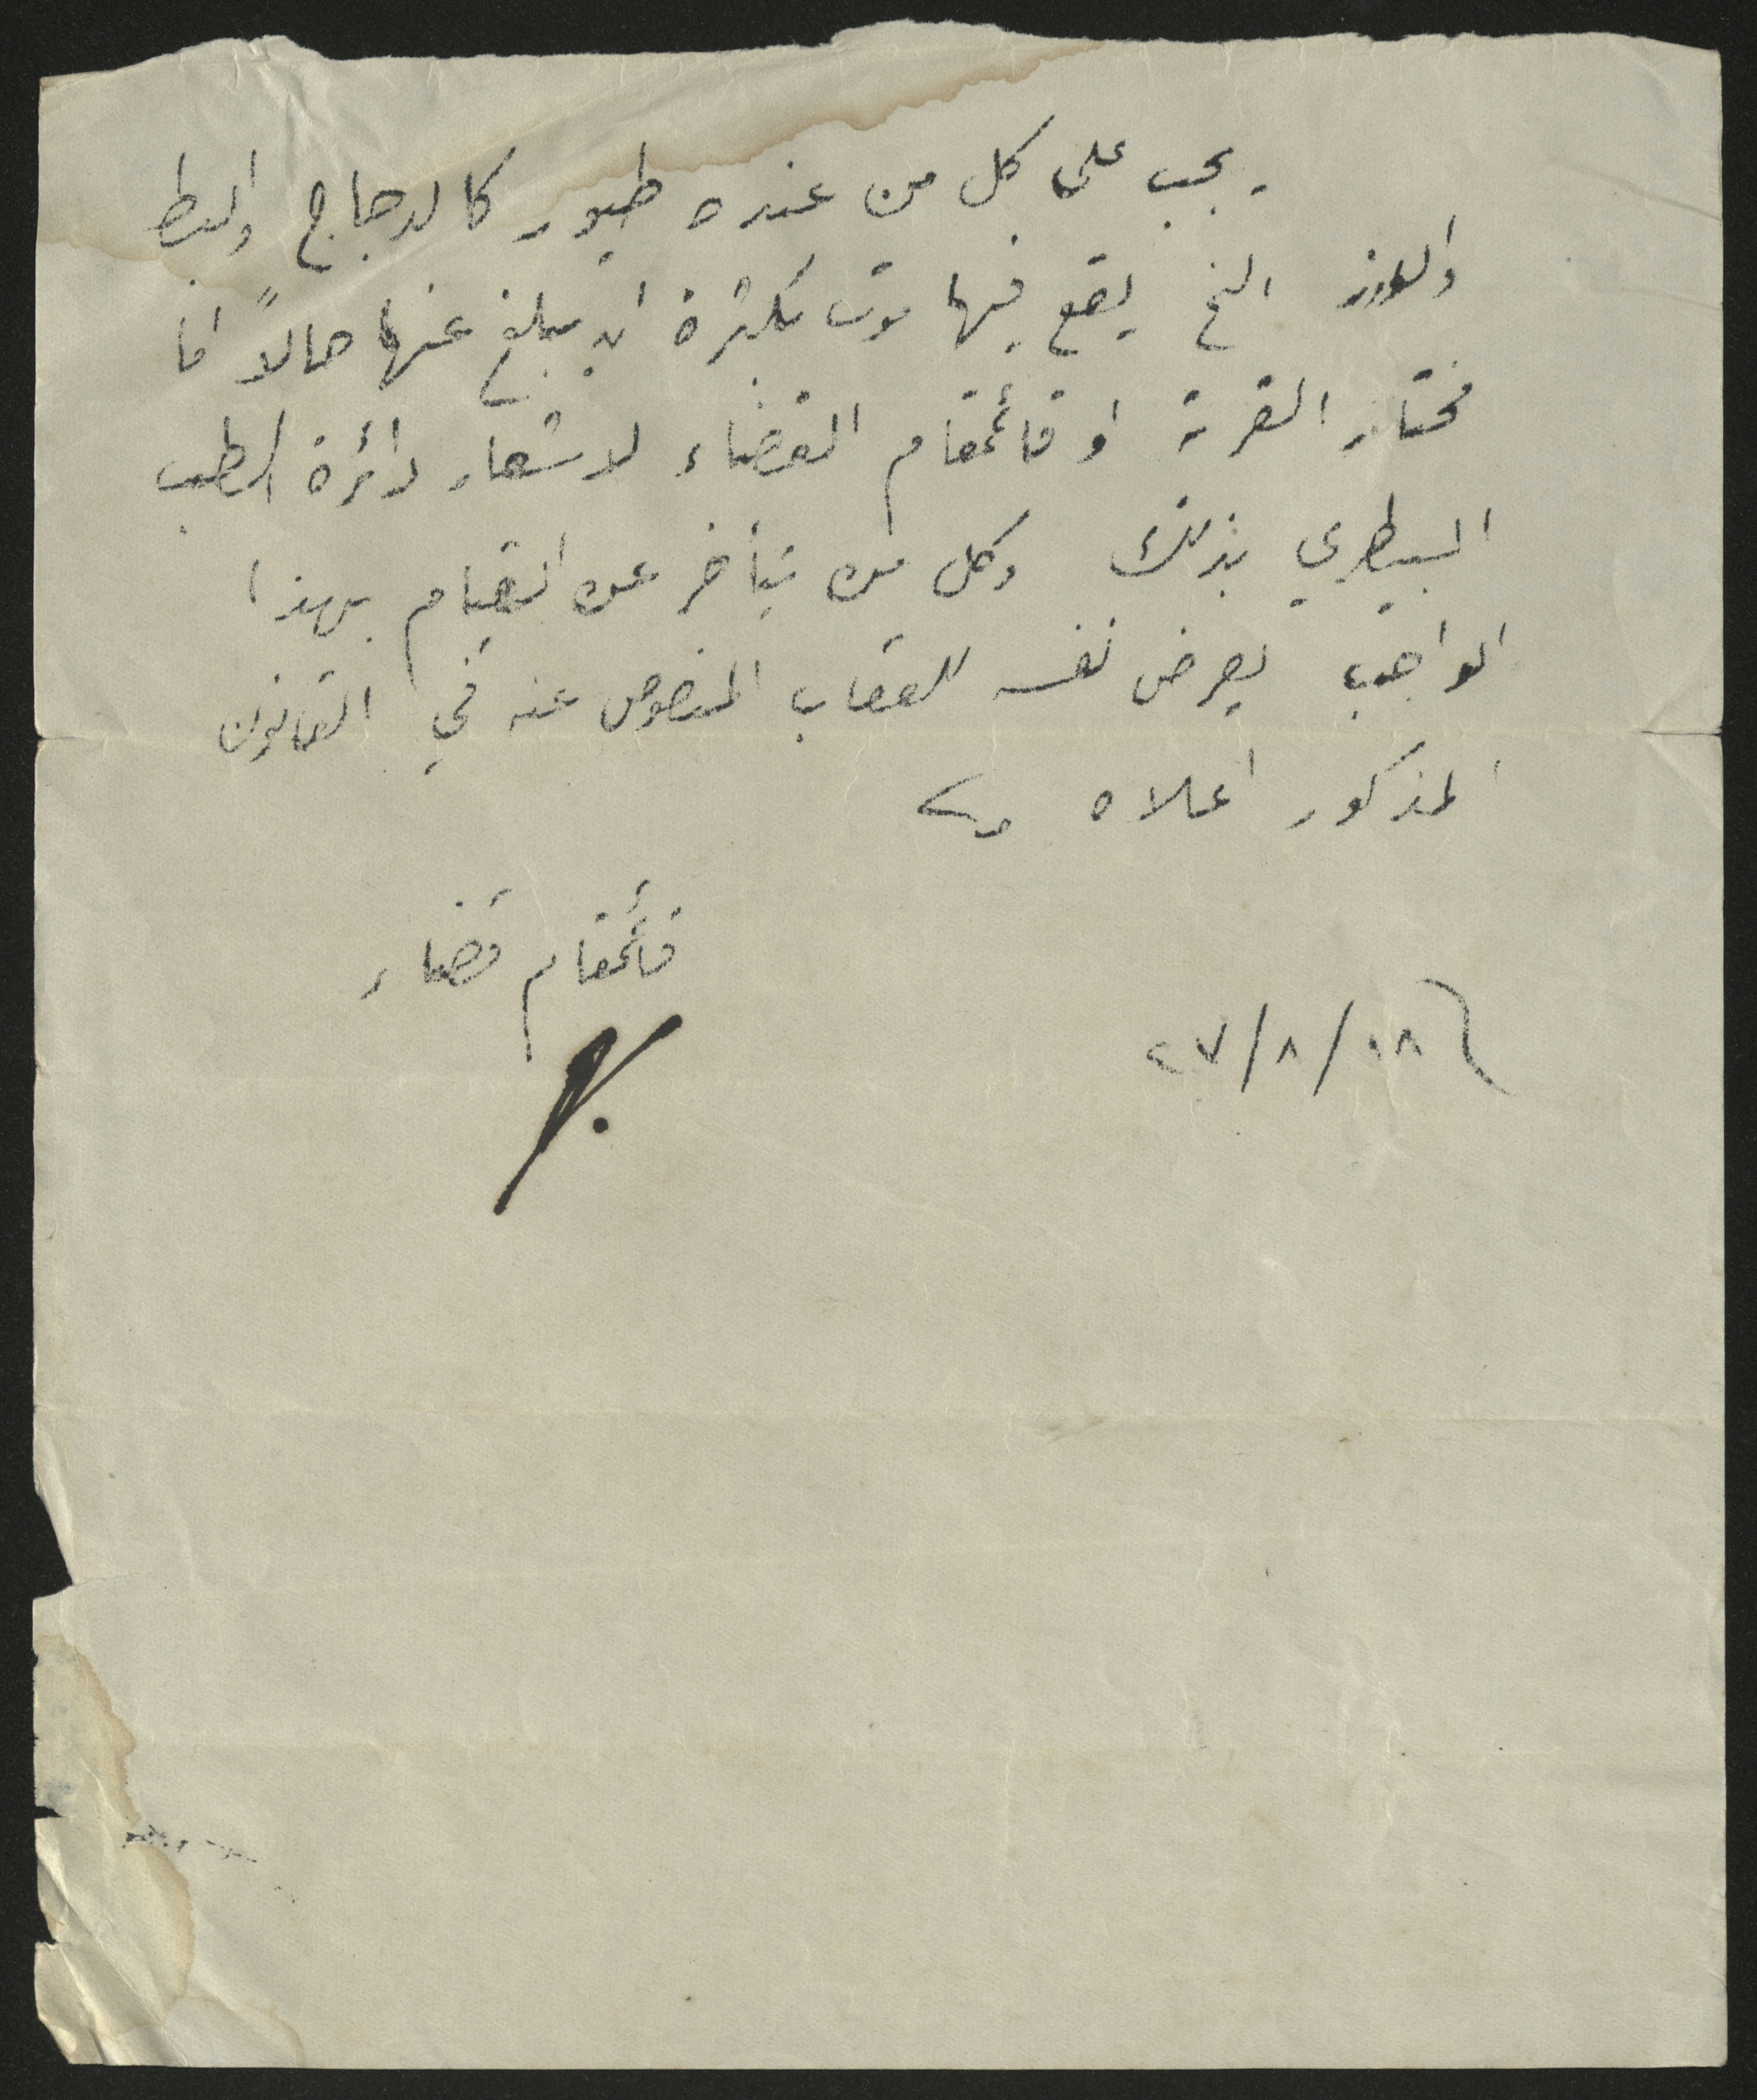 يجب على كل من عنده طيور كالدجاج والبط
والوز الخ يقع فيها موت بكثرة ان يبلغ عنها حالاً اما
مختار القرية او قائمقام القضاء لاشعار دائرة الطب
البيطري بذلك وكل من يتأخر عن القيام بهذا
الواجب يعرض نفسه للعقاب المنصوص عنه في القانون
المذكور اعلاه
قائمقام قضاء
٢٧/٨/